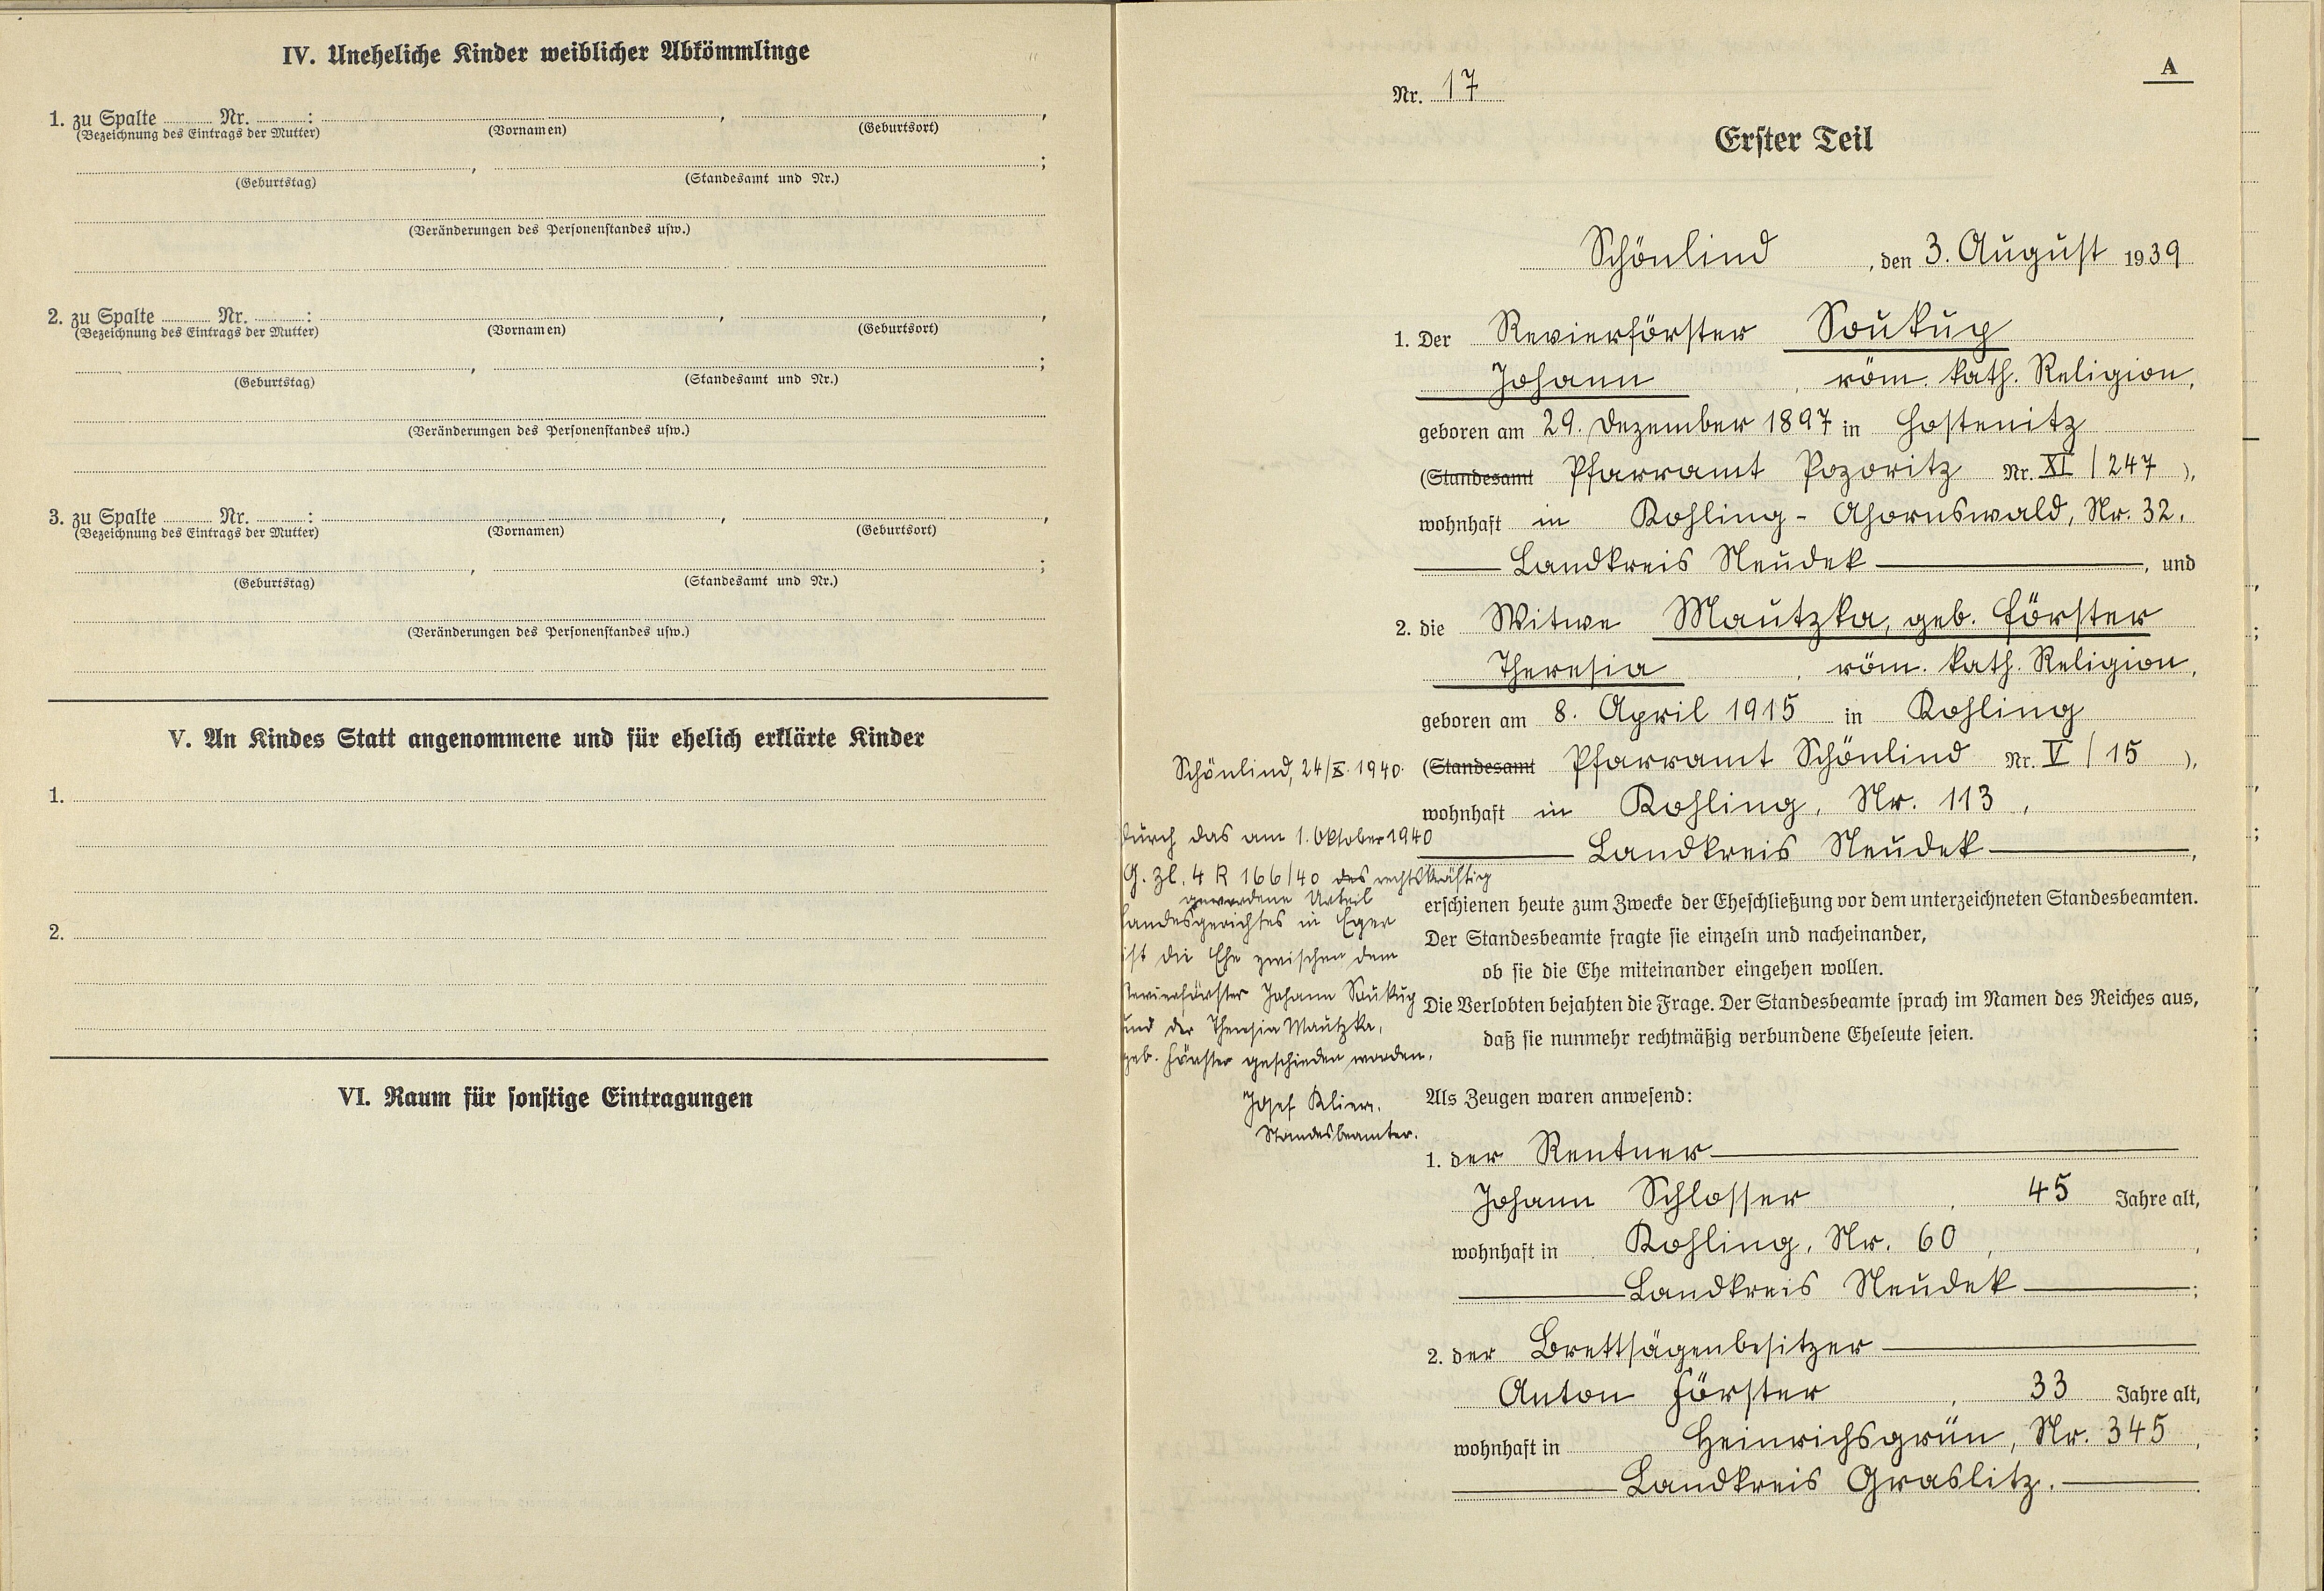 IV. Uneheliche Kinder weiblicher Abkömmlinge
1. zu Spalte ........ Nr. ........:
(Bezeichnung des Eintrags der Mutter) (Vornamen) (Geburtsort)
(Geburtstag) (Standesamt und Nr.)
(Veränderungen des Personenstandes usw.)
2. zu Spalte ........ Nr. ........:
(Bezeichnung des Eintrags der Mutter) (Vornamen) (Geburtsort)
(Geburtstag) (Standesamt und Nr.)
(Veränderungen des Personenstandes usw.)
3. zu Spalte ........ Nr. ........:
(Bezeichnung des Eintrags der Mutter) (Vornamen) (Geburtsort)
(Geburtstag) (Standesamt und Nr.)
(Veränderungen des Personenstandes usw.)
V. An Kindes Statt angenommene und für ehelich erklärte Kinder
1.
2.
VI. Raum für sonstige Eintragungen
A
Nr. 17
Erster Teil
Schönlind, den 3. August 1939
1. Der Revierförster Soukup
Johann, röm. kath. Religion,
geboren am 29. Dezember 1897 in Hostenitz
(Standesamt Pfarramt Pozoritz Nr. XI / 247),
wohnhaft in Kohling - Ahornswald, Nr. 32.
Landkreis Neudek, und
2. die Witwe Mautzka, geb. Förster
Theresia, röm. kath. Religion,
geboren am 8. April 1915 in Kohling
(Standesamt Pfarramt Schönlind Nr. V / 15),
wohnhaft in Kohling, Nr. 113,
Landkreis Neudek,
erschienen heute zum Zwecke der Eheschließung vor dem unterzeichneten Standesbeamten.
Der Standesbeamte fragte sie einzeln und nacheinander,
ob sie die Ehe miteinander eingehen wollen.
Die Verlobten bejahten die Frage. Der Standesbeamte sprach im Namen des Reiches aus,
daß sie nunmehr rechtmäßig verbundene Eheleute seien.
Als Zeugen waren anwesend:
1. der Rentner
Johann Schlosser, 45 Jahre alt,
wohnhaft in Kohling, Nr. 60,
Landkreis Neudek;
2. der Brettsägenbesitzer
Anton Förster, 33 Jahre alt,
wohnhaft in Heinrichsgrün, Nr. 345,
Landkreis Graslitz.
Schönlind, 24/X. 1940.
Durch das am 1. Oktober 1940
G. Zl. 4 R 166/40 des rechtskräftig
gewordene Urteil
Landesgerichtes in Eger
ist die Ehe zwischen dem
Revierförster Johann Soukup
und der Theresia Mautzka,
geb. Förster geschieden worden.
Josef Kliem.
Standesbeamter.